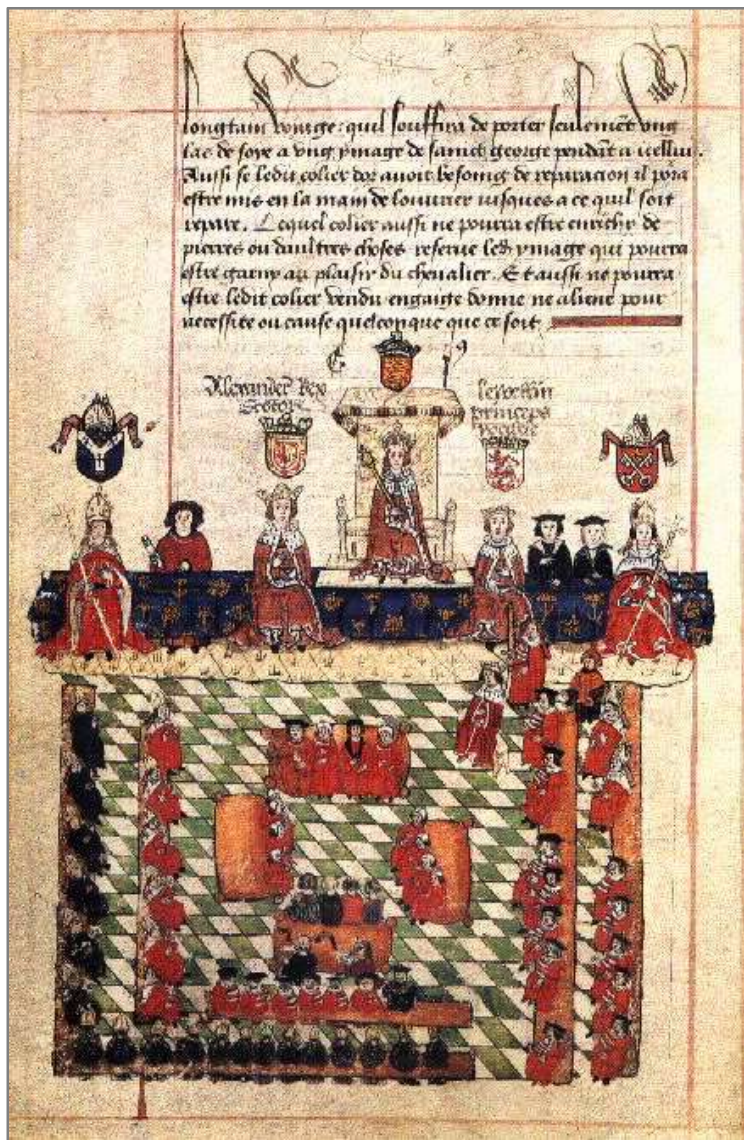 longtain voyage: quil souffira de porter seulemēt vng
las de soye a vng ymage de sainct george pendāt a icelluy.
Aussi se ledit colier dor auoit besoing de reparacion il pora
estre mis en la main de louurier iusques a ce quil soit
repare. Lequel colier aussi ne pourra estre enrichy de
pierres ou daultres choses reserue led ymage qui pourra
estre garny au plaisir du cheualier. Et aussi ne pourra
estre ledit colier vendu engaige donne ne aliene pour
necessite ou cause quelconque que ce soit
E 9
Alexander Rex
Scotor
princeps